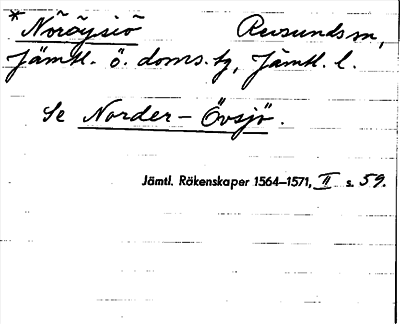 * Nöröysiö Revsunds sn,
Jämtl. ö. doms. tg, Jämtl. l.
Se Norder-Övsjö.
Jämtl. Räkenskaper 1564–1571, II s. 59.